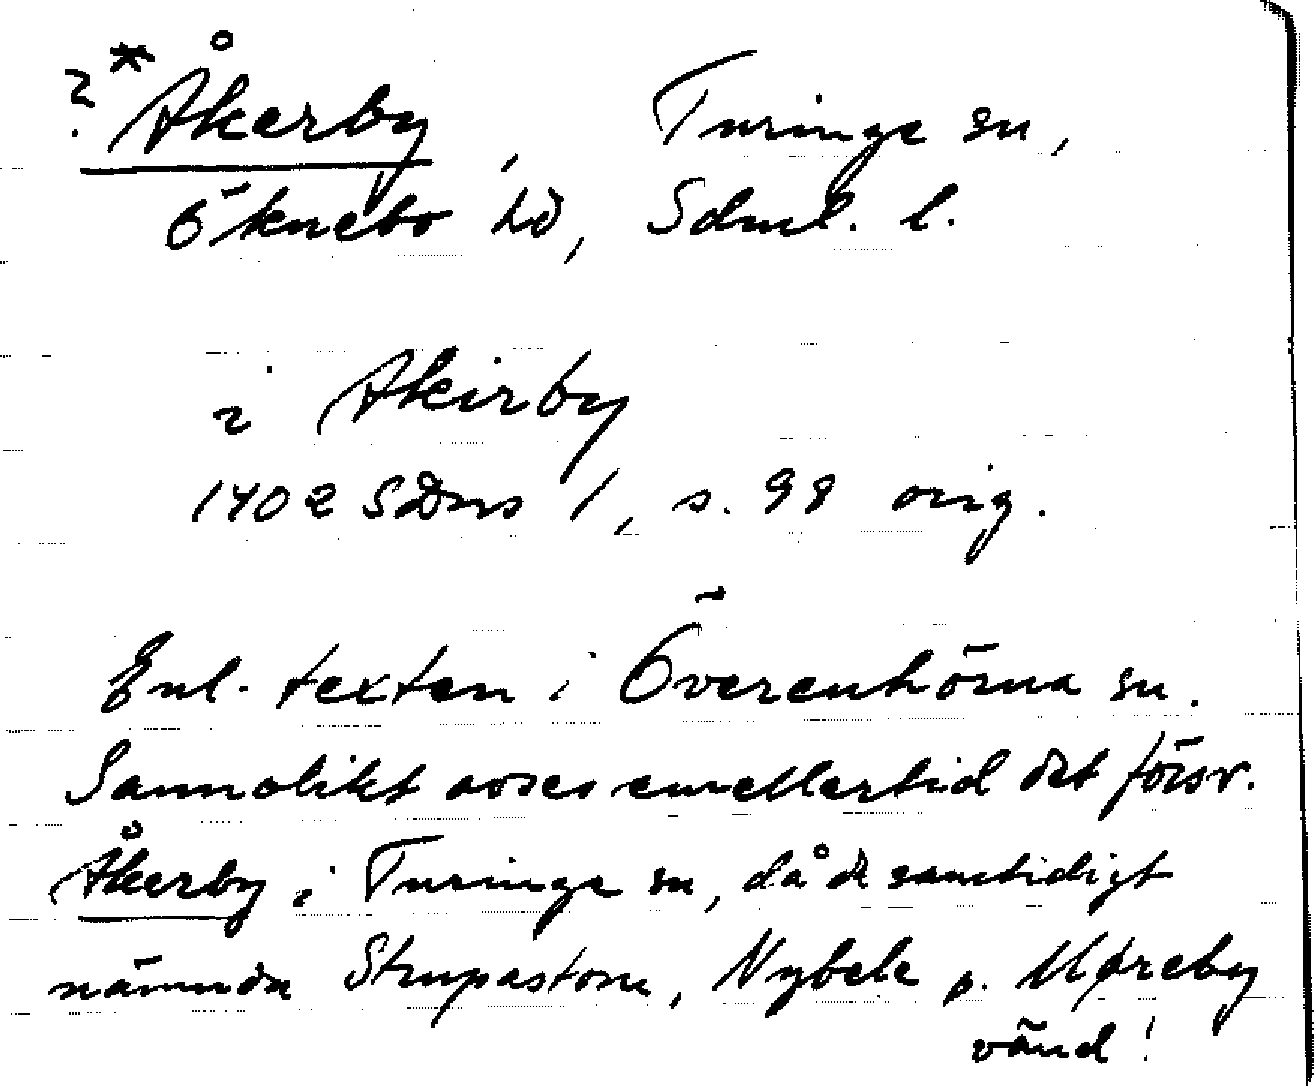 ?*Åkerby, Turinge sn,
Öknebo hd, Sdml. l.
i Akirby
1402 SDns 1, s. 98 orig.
Enl. texten i Överenhörna sn.
Sannolikt avses emellertid det försv.
Åkerby i Turinge sn, då de samtidigt
nämnda Strupastom, Nybele o. Møreby
vänd!